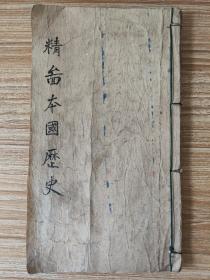 精畣本國歷史